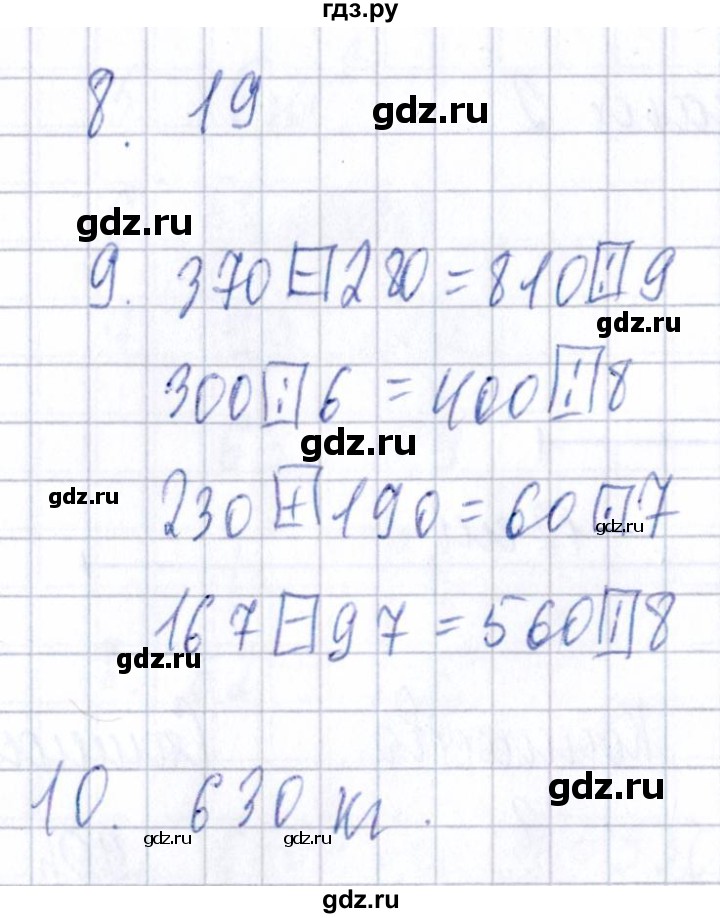 гдз.ру
8. 19
gdz.ru
gdz.ru
9. 370 - 280 = 810 : 9
gdz.ru
300 : 6 = 400 : 8
gdz.ru
gdz.ru
230 + 190 = 60 · 7
gdz.ru
167 - 97 = 560 : 8
gdz.ru
gdz.ru
10. 630 кг.
gdz.ru
gdz.ru
gdz.ru